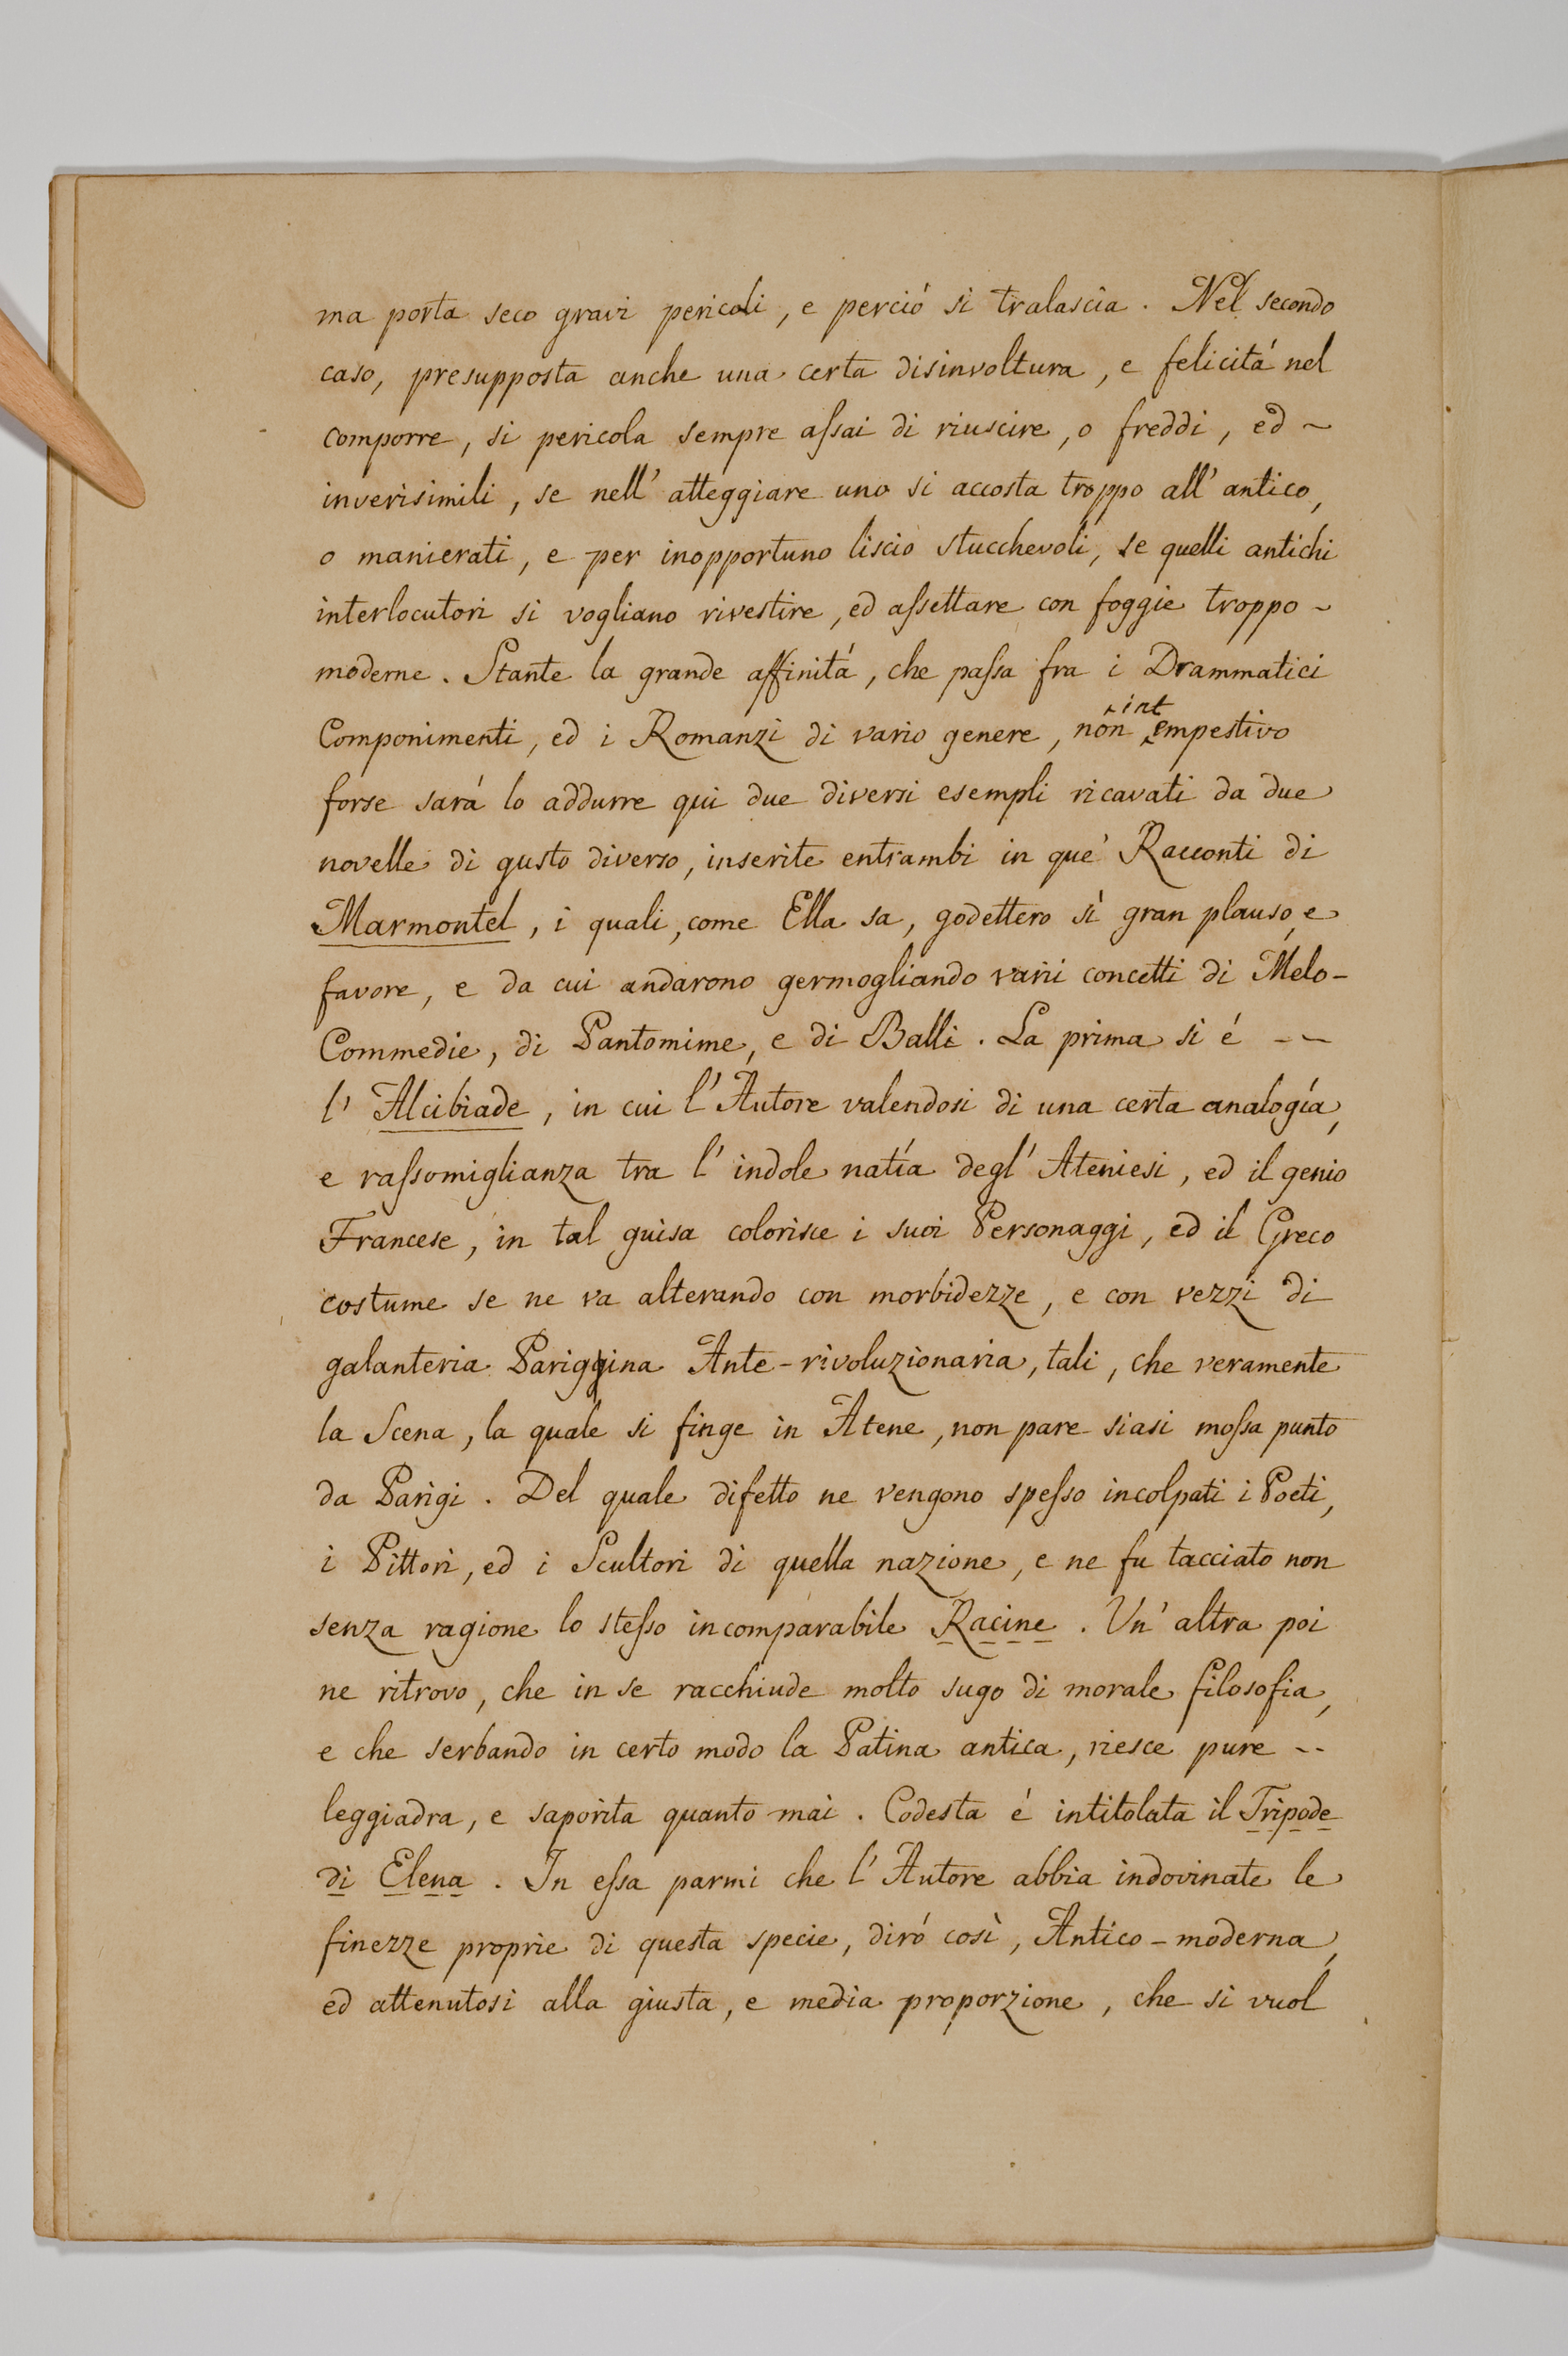 ma porta seco gravi pericoli, e perció si tralascia. Nel secondo
caso, presupposta anche una certa disinvoltura, e felicitá nel
comporre, si pericola sempre aſsai di riuscire, o freddi, ed ~
inverisimili, se nell' atteggiare uno si accosta troppo all' antico,
o manierati, e per inopportuno liscio stucchevoli, se quelli antichi
interlocutori si vogliano rivestire, ed aſsettare con foggie troppo ~
moderne. Stante la grande affinitá, che paſsa fra i Drammatici
Componimenti, ed i Romanzi di vario genere, non intempestivo
forse sará lo addurre qui due diversi esempli ricavati da due
novelle di gusto diverso, inserite entrambi in que' Racconti di
Marmontel, i quali, come Ella sa, godettero sì gran plauso, e
favore, e da cui andarono germogliando varii concetti di Melo-
Commedie, di Pantomime, e di Balli. La prima si é - ~
l' Alcibiade, in cui l' Autore valendosi di una certa analogía,
e raſsomiglianza tra l' indole natía degl' Ateniesi, ed il genio
Francese, in tal guisa colorisce i suoi Personaggi, ed il Greco
costume se ne va alterando con morbidezze, e con vezzi di
galanteria Pariggina Ante-rivoluzionaria, tali, che veramente
la Scena, la quale si finge in Atene, non pare siasi moſsa punto
da Parigi. Del quale difetto ne vengono speſso incolpati i Poeti,
i Pittori, ed i Scultori di quella nazione, e ne fu tacciato non
senza ragione lo steſso incomparabile Racine. Un' altra poi
ne ritrovo, che in se racchiude molto sugo di morale filosofia,
e che serbando in certo modo la Patina antica, riesce pure --
leggiadra, e saporita quanto mai. Codesta é intitolata il Tripode
di Elena. In eſsa parmi che l' Autore abbia indovinate le
finezze proprie di questa specie, diró così, Antico-moderna,
ed attenutosi alla giusta, e media proporzione, che si vuol